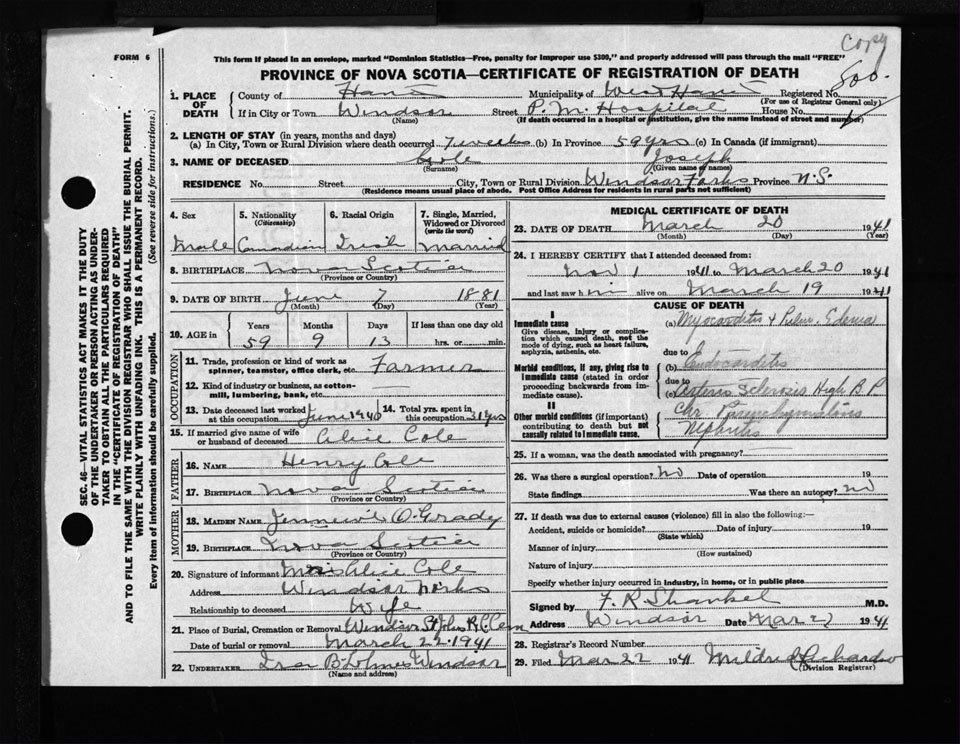 Copy
FORM 6
This form if placed in an envelope, marked "Dominion Statistics—Free, penalty for improper use $300," and properly addressed will pass through the mail "FREE"
PROVINCE OF NOVA SCOTIA—CERTIFICATE OF REGISTRATION OF DEATH
1. PLACE OF DEATH
County of Hants Municipality of West Hants Registered No. 800
(For use of Registrar General only)
If in City or Town Windsor Street P. M. Hospital House No.
(Name) (If death occurred in a hospital or institution, give the name instead of street and number)
2. LENGTH OF STAY (in years, months and days)
(a) In City, Town or Rural Division where death occurred 7 weeks (b) In Province 59 yrs (c) In Canada (if immigrant)
3. NAME OF DECEASED Cole Joseph
(Surname) (Given name or names)
RESIDENCE No. Street City, Town or Rural Division Windsor Forks Province N.S.
(Residence means usual place of abode. Post Office Address for residents in rural parts not sufficient)
4. Sex Male
5. Nationality (Citizenship) Canadian
6. Racial Origin Irish
7. Single, Married, Widowed or Divorced (write the word) Married
8. BIRTHPLACE Nova Scotia
(Province or Country)
9. DATE OF BIRTH June 7 1881
(Month) (Day) (Year)
10. AGE in Years Months Days If less than one day old
59 9 13 hrs. or min.
OCCUPATION
11. Trade, profession or kind of work as spinner, teamster, office clerk, etc. Farmer
12. Kind of industry or business, as cotton-mill, lumbering, bank, etc.
13. Date deceased last worked at this occupation June 1940 14. Total yrs. spent in this occupation 31 yrs
15. If married give name of wife or husband of deceased Alice Cole
FATHER
16. NAME Henry Cole
17. BIRTHPLACE Nova Scotia
(Province or Country)
MOTHER
18. MAIDEN NAME O. Grady
19. BIRTHPLACE Nova Scotia
(Province or Country)
20. Signature of informant Mrs Alice Cole
Address Windsor Forks
Relationship to deceased Wife
21. Place of Burial, Cremation or Removal Windsor St Johns R.C. Cem
Date of burial or removal March 22. 1941
22. UNDERTAKER Ira B Windsor
(Name and address)
MEDICAL CERTIFICATE OF DEATH
23. DATE OF DEATH March 20 1941
(Month) (Day) (Year)
24. I HEREBY CERTIFY that I attended deceased from:
Nov 1 1941 to March 20 1941
and last saw him alive on March 19 1941
CAUSE OF DEATH
I
Immediate cause
Give disease, injury or complication which caused death, not the mode of dying, such as heart failure, asphyxia, asthenia, etc.
(a) Myocarditis & Pulm. Edema
due to
Morbid conditions, if any, giving rise to immediate cause (stated in order proceeding backwards from immediate cause).
(b) Endocarditis
due to
(c) Arterio Sclerosis High B P
II
Other morbid conditions (if important) contributing to death but not causally related to immediate cause.
Chr Parenchymatous
Nephritis
25. If a woman, was the death associated with pregnancy?
26. Was there a surgical operation? No Date of operation 19
State findings Was there an autopsy? No
27. If death was due to external causes (violence) fill in also the following:—
Accident, suicide or homicide? Date of injury 19
(State which)
Manner of injury
(How sustained)
Nature of injury
Specify whether injury occurred in industry, in home, or in public place
Signed by F. R Shankel M.D.
Address Windsor Date Mar 22 1941
28. Registrar's Record Number
29. Filed Mar 22 1941 Mildred Richardson
(Division Registrar)
SEC. 46—VITAL STATISTICS ACT MAKES IT THE DUTY
OF THE UNDERTAKER OR PERSON ACTING AS UNDER-
TAKER TO OBTAIN ALL THE PARTICULARS REQUIRED
IN THE "CERTIFICATE OF REGISTRATION OF DEATH"
AND TO FILE THE SAME WITH THE DIVISION REGISTRAR WHO SHALL ISSUE THE BURIAL PERMIT.
WRITE PLAINLY WITH UNFADING INK. THIS IS A PERMANENT RECORD.
Every item of information should be carefully supplied. (See reverse side for instructions.)